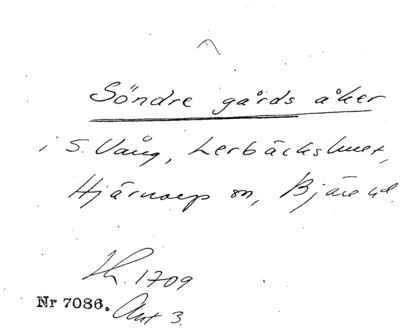 Söndre gårds åker
i S. Vång, Lerbäckshuset,
Hjärnarp sn, Bjäre hd.
Lh. 1709
Nr 7086. Akt 3.